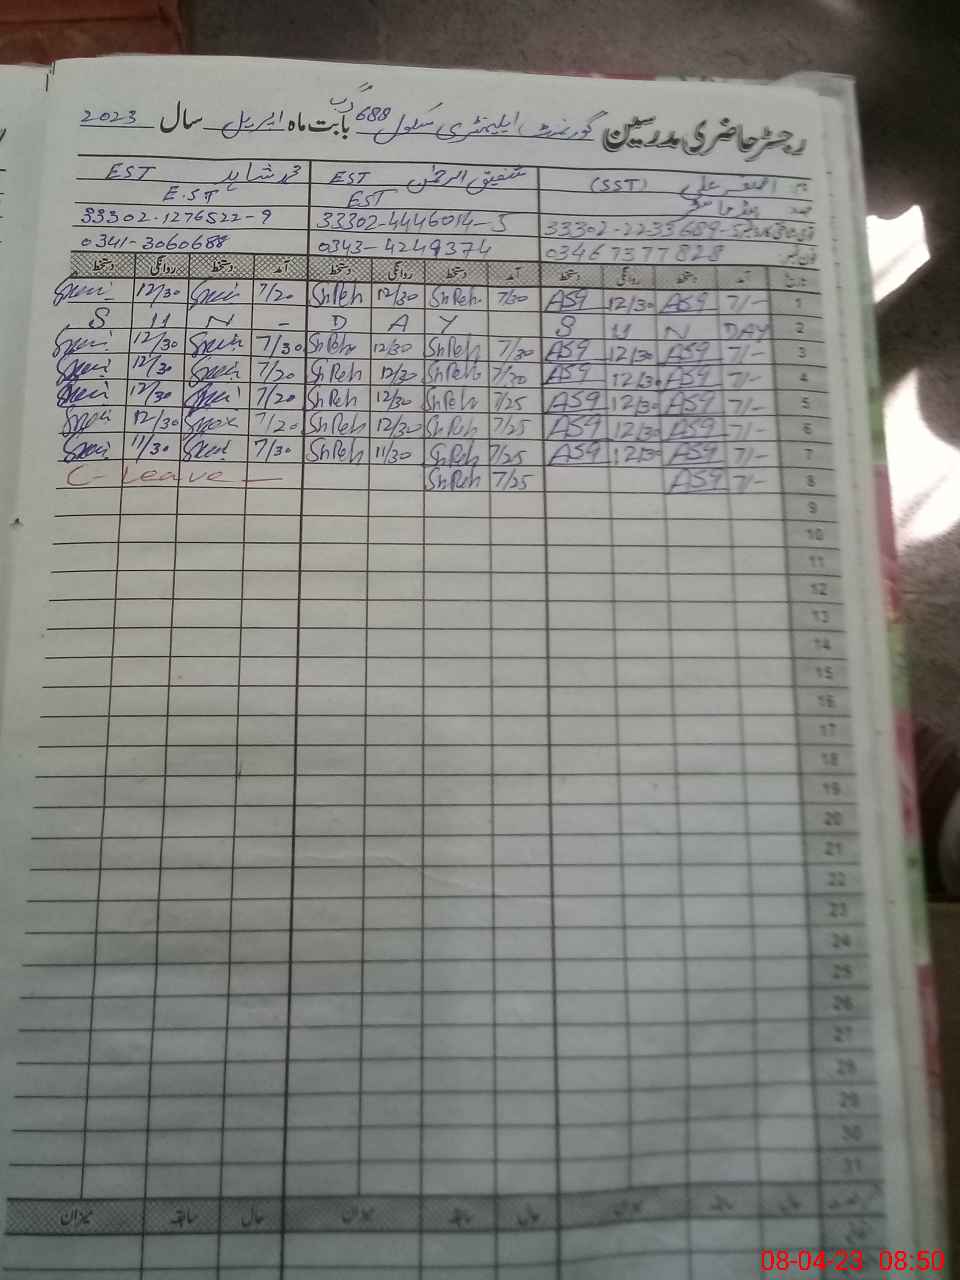 رجسٹر حاضری مدرسین گورنمنٹ ایلیمنٹری سکول 688 گ ب بابت ماہ اپریل سال 2023
اصغر علی (SST) شفیق الرحمٰن EST محمد شاہد EST
ہیڈ ماسٹر EST E.ST
33302-2233689-5 33302-4446014-5 33302-1276522-9
فون نمبر 03467377828 0343-4249374 0341-3060688
تاریخ آمد دستخط روانگی دستخط آمد دستخط روانگی دستخط آمد دستخط روانگی دستخط
1 7/- ASG 12/30 ASG 7/30 ShReh 12/30 ShReh 7/20 12/30
2 S U N DAY S U N - D A Y
3 7/- ASG 12/30 ASG 7/30 ShReh 12/30 ShReh 7/30 12/30
4 7/- ASG 12/30 ASG 7/20 ShReh 12/30 ShReh 7/20 12/30
5 7/- ASG 12/30 ASG 7/25 ShReh 12/30 ShReh 7/20 12/30
6 7/- ASG 12/30 ASG 7/25 ShReh 12/30 ShReh 7/20 12/30
7 7/- ASG 12/30 ASG 7/25 ShReh 11/30 ShReh 7/30 11/30
8 7/- ASG 7/25 ShReh C-Leave -
9
10
11
12
13
14
15
16
17
18
19
20
21
22
23
24
25
26
27
28
29
30
31
حال سابقہ میزان حال سابقہ میزان حال سابقہ میزان
08-04-23 08:50